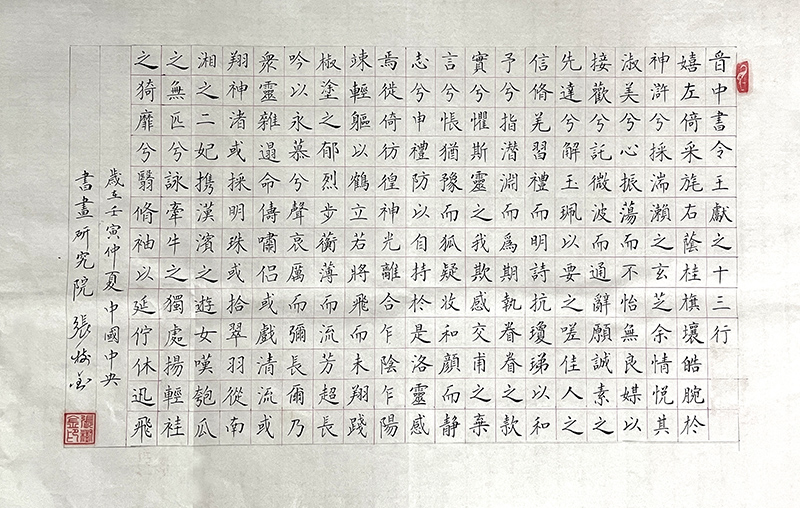 晉中書令王獻之十三行
嬉左倚采旄右蔭桂旗壤皓腕於
神滸兮採湍瀨之玄芝余情悅其
淑美兮心振蕩而不怡無良媒以
接歡兮託微波而通辭願誠素之
先達兮解玉珮以要之嗟佳人之
信脩羌習禮而明詩抗瓊珶以和
予兮指潛淵而爲期執眷眷之款
實兮懼斯靈之我欺感交甫之棄
言兮悵猶豫而狐疑收和顏而靜
志兮申禮防以自持於是洛靈感
焉徙倚彷徨神光離合乍陰乍陽
竦輕軀以鶴立若將飛而未翔踐
椒塗之郁烈步蘅薄而流芳超長
吟以永慕兮聲哀厲而彌長爾乃
衆靈雜遝命儔嘯侶或戲清流或
翔神渚或採明珠或拾翠羽從南
湘之二妃携漢濱之遊女嘆匏瓜
之無匹兮詠牽牛之獨處揚輕袿
之猗靡兮翳脩袖以延佇休迅飛
歲在壬寅仲夏中國中央
書畫研究院張樹金